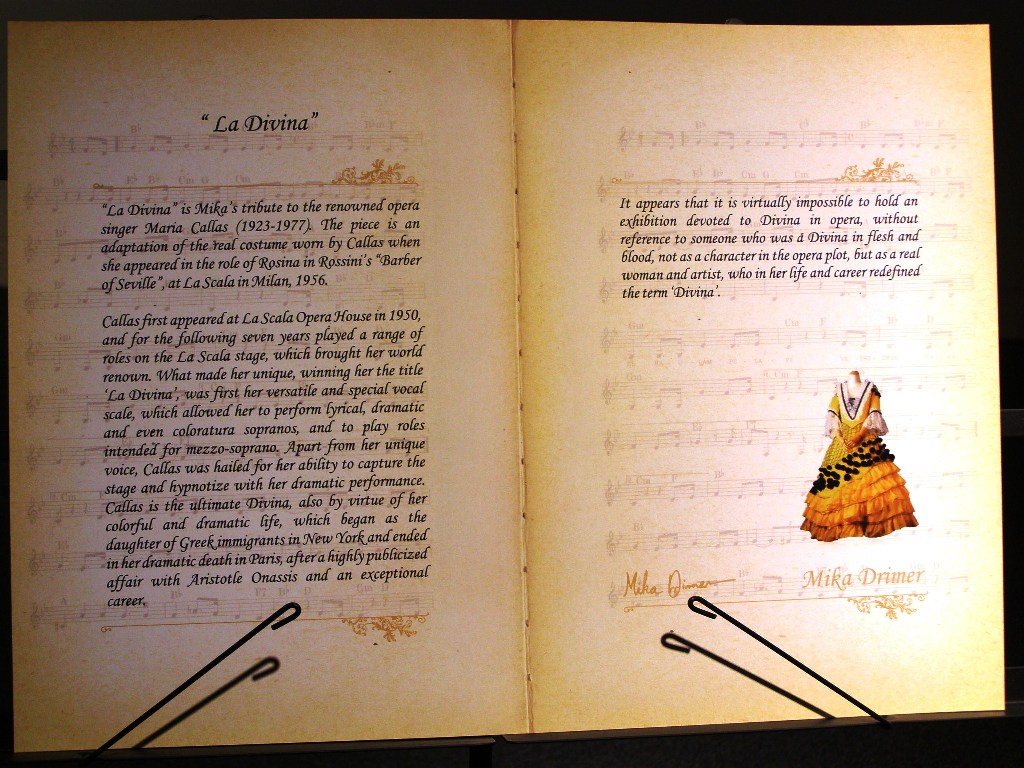 “ La Divina”
“La Divina” is Mika’s tribute to the renowned opera
singer Maria Callas (1923-1977). The piece is an
adaptation of the real costume worn by Callas when
she appeared in the role of Rosina in Rossini’s “Barber
of Seville”, at La Scala in Milan, 1956.
Callas first appeared at La Scala Opera House in 1950,
and for the following seven years played a range of
roles on the La Scala stage, which brought her world
renown. What made her unique, winning her the title
‘La Divina’, was first her versatile and special vocal
scale, which allowed her to perform lyrical, dramatic
and even coloratura sopranos, and to play roles
intended for mezzo-soprano. Apart from her unique
voice, Callas was hailed for her ability to capture the
stage and hypnotize with her dramatic performance.
Callas is the ultimate Divina, also by virtue of her
colorful and dramatic life, which began as the
daughter of Greek immigrants in New York and ended
in her dramatic death in Paris, after a highly publicized
affair with Aristotle Onassis and an exceptional
career.
It appears that it is virtually impossible to hold an
exhibition devoted to Divina in opera, without
reference to someone who was a Divina in flesh and
blood, not as a character in the opera plot, but as a real
woman and artist, who in her life and career redefined
the term ‘Divina’.
Mika Drimer
Mika Drimer